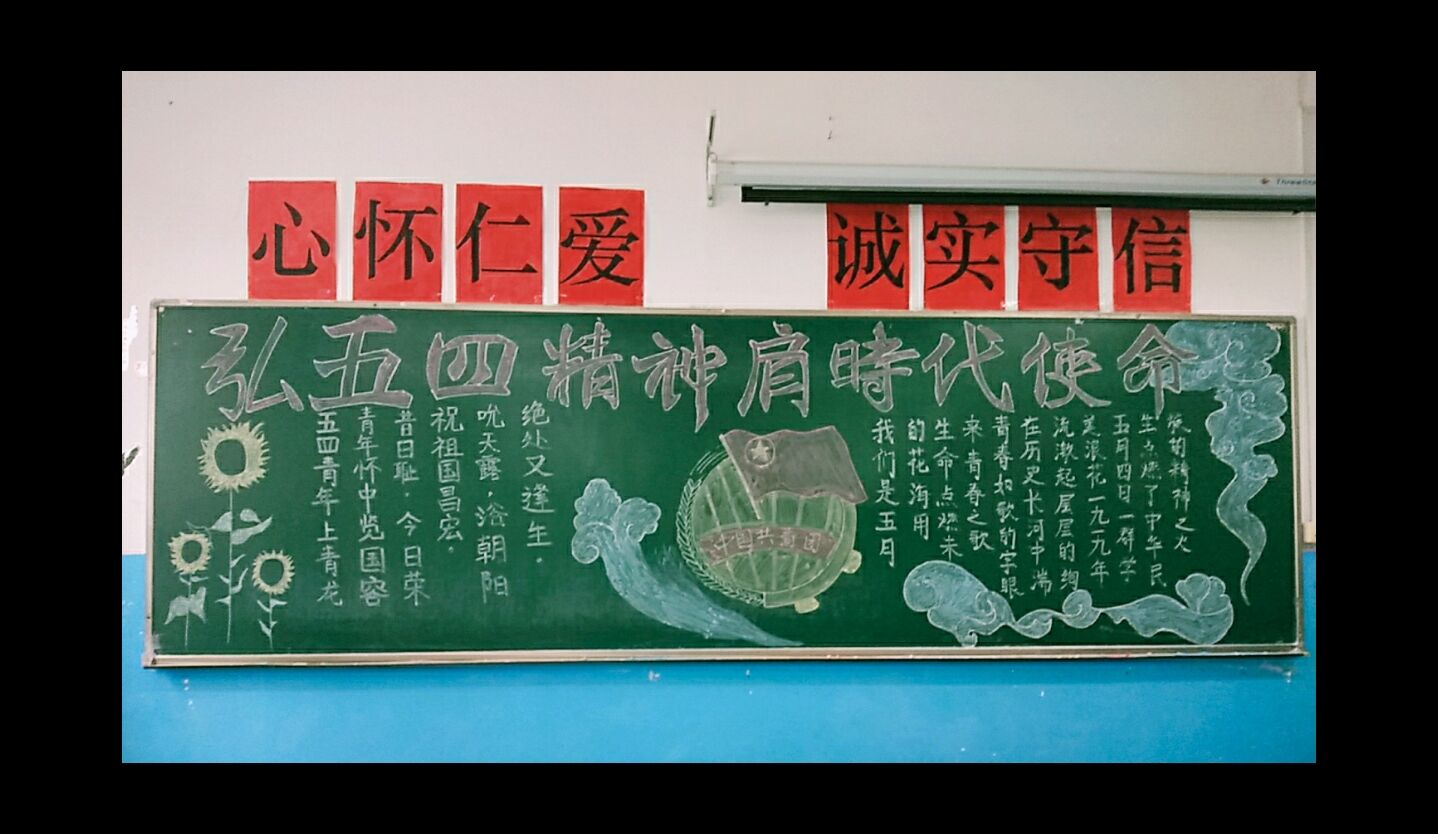 心怀仁爱
诚实守信
弘五四精神肩時代使命
五四青年上青龙
青年怀中览国容
昔日耻,今日荣
祝祖国昌宏。
吮天露,浴朝阳
绝处又逢生。
中国共青团
我们是五月
的花海用
生命点燃未
来青春之歌
青春如歌的字眼
在历史长河中湍
流激起层层的绚
美浪花一九一九年
五月四日一群学
生点燃了中华民
族的精神之火